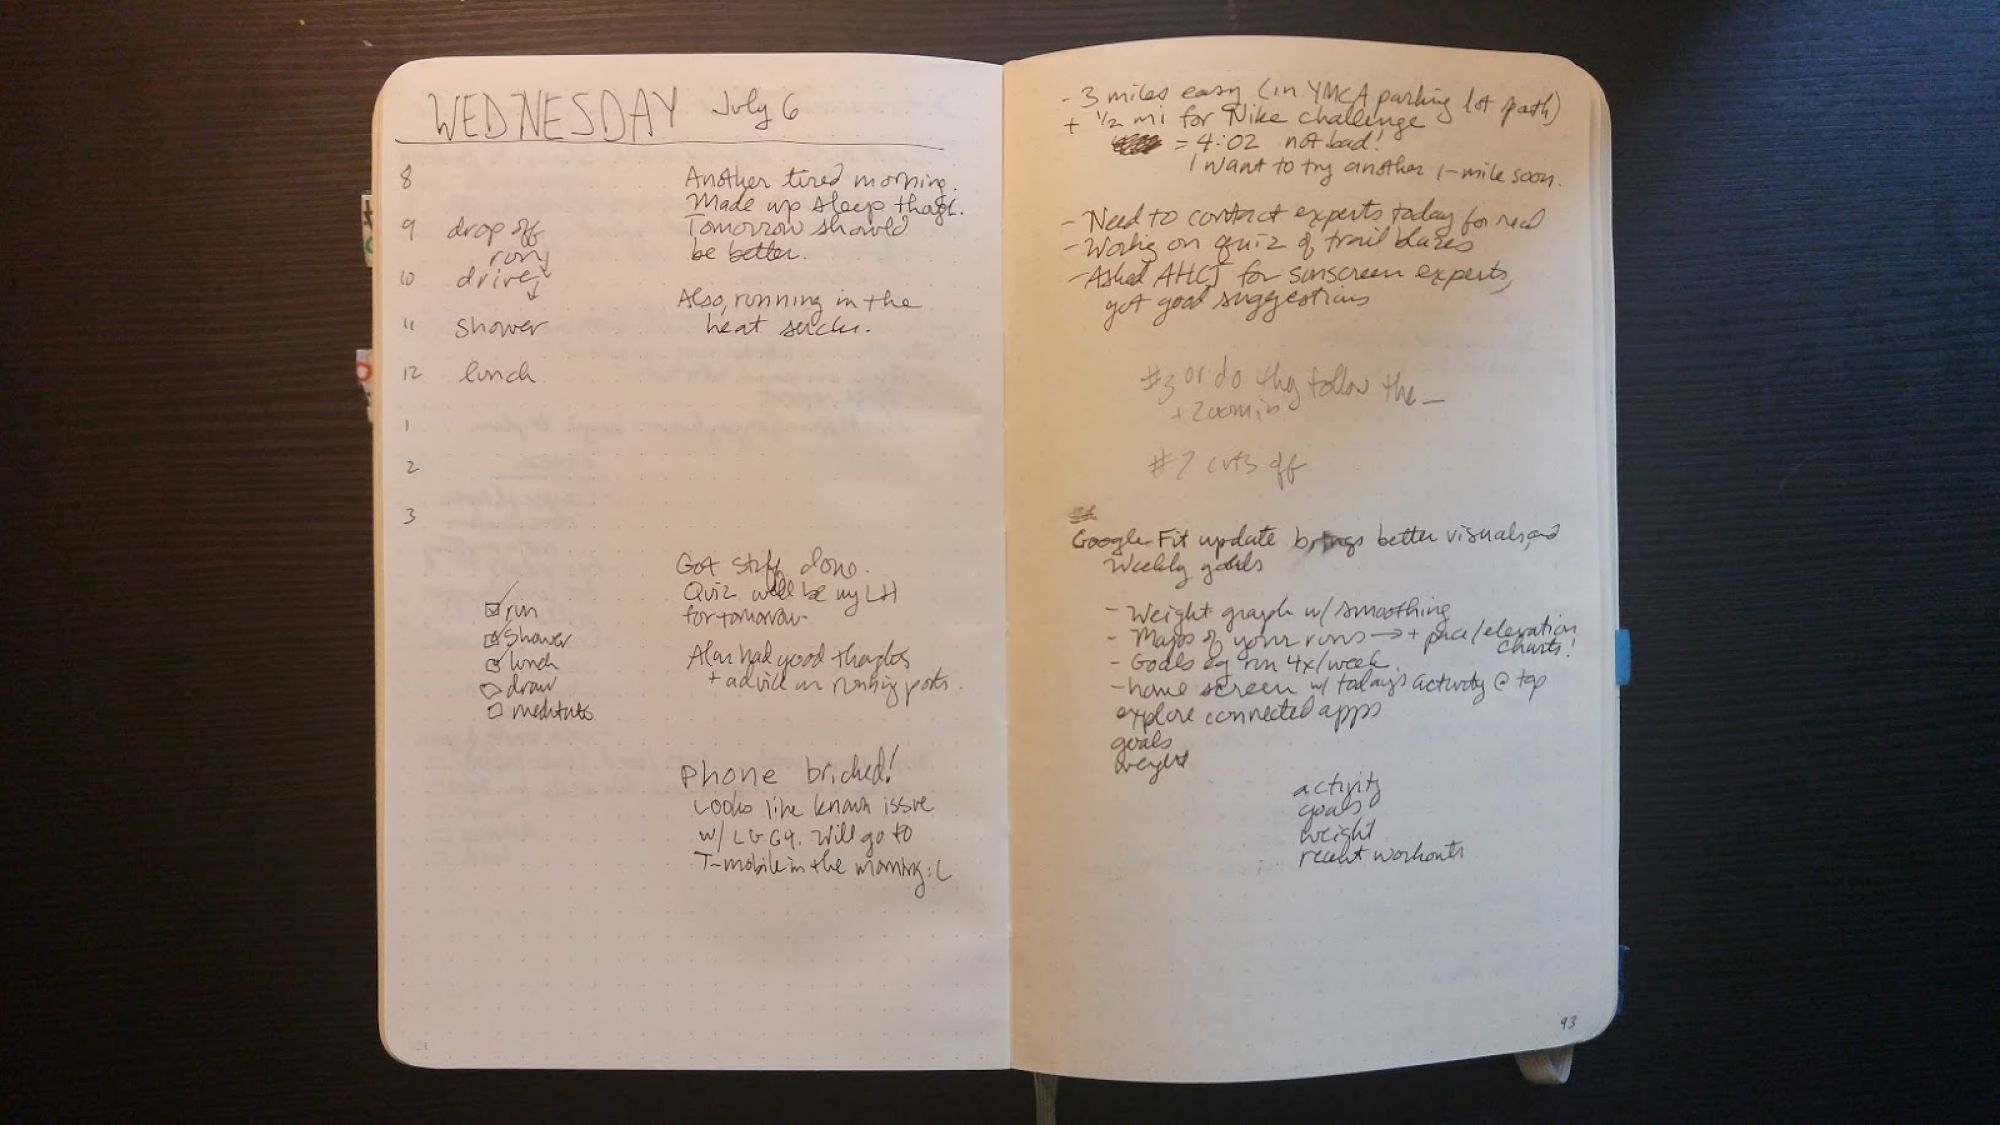 WEDNESDAY July 6
8
9 drop off
run
10 drive
11 shower
12 lunch
1
2
3
Another tired morning.
Made up sleep though.
Tomorrow should
be better.
Also, running in the
heat sucks.
run
shower
lunch
draw
meditate
Got stuff done.
Quiz will be my LH
for tomorrow.
Alan had good thoughts
+ advice on running posts.
Phone bricked!
Looks like known issue
w/ LG G4. Will go to
T-mobile in the morning :(
- 3 miles easy (in YMCA parking lot path)
+ 1/2 mi for Nike challenge
= 4:02 not bad!
I want to try another 1-mile soon.
- Need to contact experts today for real
- Working on quiz of trail blazes
- Asked AHCJ for sunscreen experts,
got good suggestions
#3 or do they follow the _
+ zoom in
#7 cuts off
Google Fit update brings better visuals and
Weekly goals
- Weight graph w/ smoothing
- Maps of your runs → + pace/elevation
charts!
- Goals eg run 4x/week.
- home screen w/ today's activity @ top
explore connected apps
goals
weight
activity
goals
weight
recent workouts
93